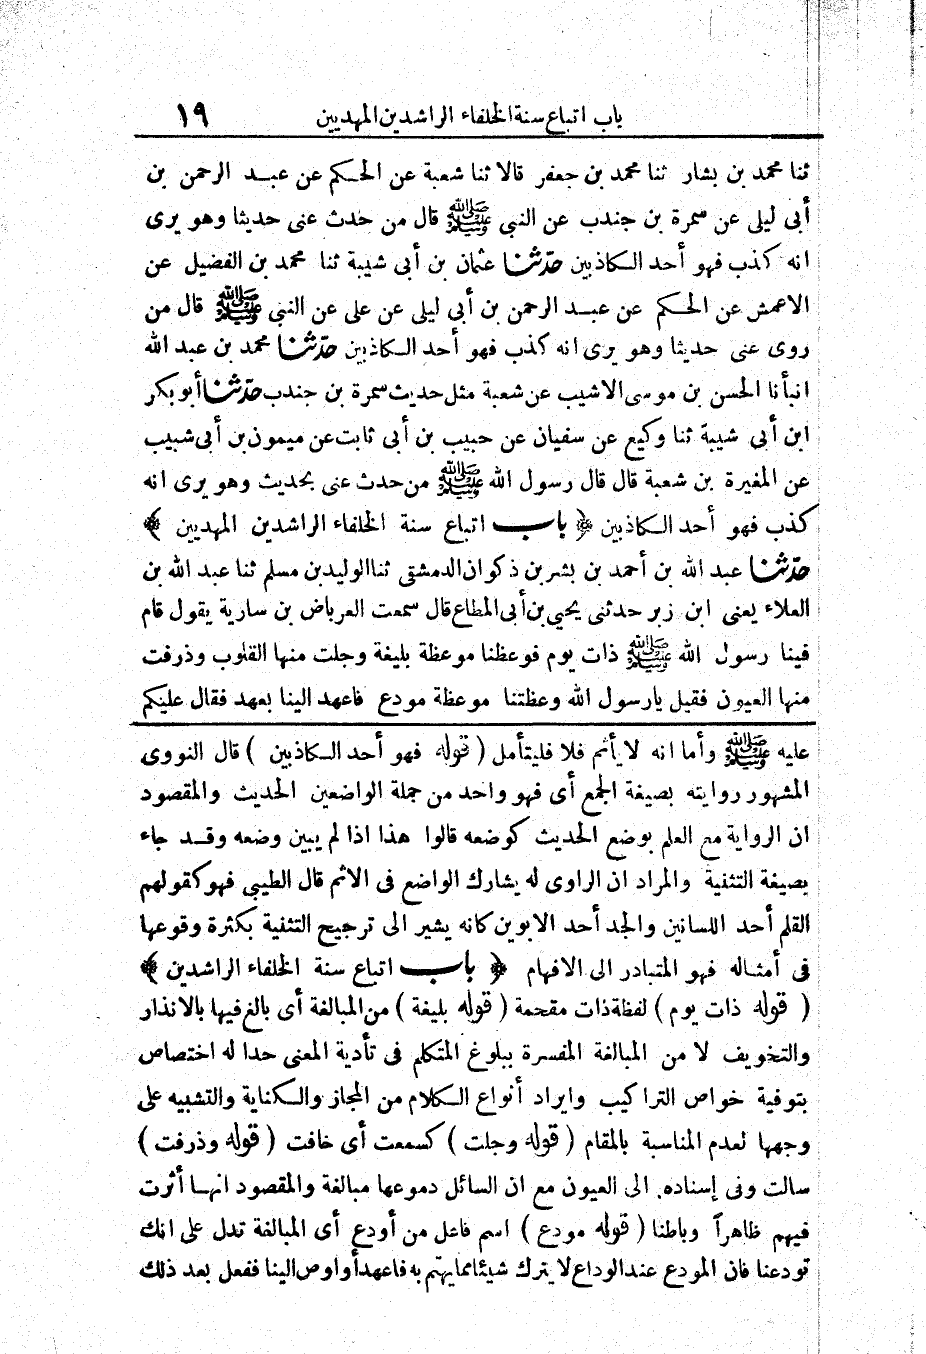 باب اتباع سنة الخلفاء الراشدين المهديين ١٩
ثنا محمد بن بشار ثنا محمد بن جعفر قالا ثنا شعبة عن الحكم عن عبد الرحمن بن
أبى ليلى عن سمرة بن جندب عن النبى ﷺ قال من حدث عنى حديثا وهو يرى
انه كذب فهو أحد الكاذبين حدّثنا عثمان بن أبى شيبة ثنا محمد بن الفضيل عن
الاعمش عن الحكم عن عبد الرحمن بن أبى ليلى عن على عن النبى ﷺ قال من
روى عنى حديثا وهو يرى انه كذب فهو أحد الكاذبين حدّثنا محمد بن عبد الله
انبأنا الحسن بن موسى الاشيب عن شعبة مثل حديث سمرة بن جندب حدّثنا أبو بكر
ابن أبى شيبة ثنا وكيع عن سفيان عن حبيب بن أبى ثابت عن ميمون بن أبى شبيب
عن المغيرة بن شعبة قال قال رسول الله ﷺ من حدث عنى بحديث وهو يرى انه
كذب فهو أحد الكاذبين ﴿ باب اتباع سنة الخلفاء الراشدين المهديين ﴾
حدّثنا عبد الله بن أحمد بن بشر بن ذكوان الدمشقى ثنا الوليد بن مسلم ثنا عبد الله بن
العلاء يعنى ابن زبر حدثنى يحيى بن أبى المطاع قال سمعت العرباض بن سارية يقول قام
فينا رسول الله ﷺ ذات يوم فوعظنا موعظة بليغة وجلت منها القلوب وذرفت
منها العيون فقيل يارسول الله وعظتنا موعظة مودع فاعهد الينا بعهد فقال عليكم
عليه ﷺ وأما انه لا يأثم فلا فليتأمل ( قوله فهو أحد الكاذبين ) قال النووى
المشهور روايته بصيغة الجمع أى فهو واحد من جملة الواضعين الحديث والمقصود
ان الرواية مع العلم بوضع الحديث كوضعه قالوا هذا اذا لم يبين وضعه وقد جاء
بصيغة التثنية والمراد ان الراوى له يشارك الواضع فى الاثم قال الطيبى فهو كقولهم
القلم أحد اللسانين والجد أحد الابوين كانه يشير الى ترجيح التثنية بكثرة وقوعها
فى أمثاله فهو المتبادر الى الافهام ﴿ باب اتباع سنة الخلفاء الراشدين ﴾
( قوله ذات يوم ) لفظة ذات مقحمة ( قوله بليغة ) من المبالغة أى بالغ فيها بالانذار
والتخويف لا من المبالغة المفسرة ببلوغ المتكلم فى تأدية المعنى حدا له اختصاص
بتوفية خواص التراكيب وايراد أنواع الكلام من المجاز والكناية والتشبيه على
وجهها لعدم المناسبة بالمقام ( قوله وجلت ) كسمعت أى خافت ( قوله وذرفت )
سالت وفى إسناده الى العيون مع ان السائل دموعها مبالغة والمقصود انها أثرت
فيهم ظاهراً وباطنا ( قوله مودع ) اسم فاعل من أودع أى المبالغة تدل على انك
تودعنا فان المودع عند الوداع لا يترك شيئا مما يهتم به فاعهد أو اوص الينا ففعل بعد ذلك